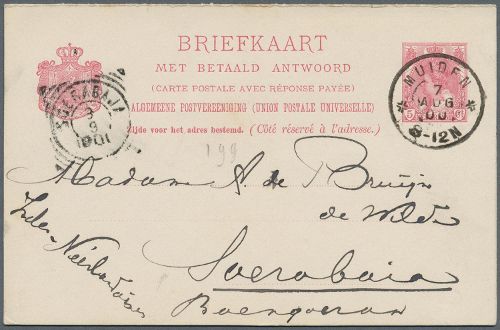 BRIEFKAART
MET BETAALD ANTWOORD
(CARTE POSTALE AVEC RÉPONSE PAYÉE)
ALGEMEENE POSTVEREENIGING (UNION POSTALE UNIVERSELLE)
Zijde voor het adres bestemd. (Côté réservé à l'adresse.)
SOERABAJA
3
9
1901
MUIDEN
7
AUG
00
8-12N
5
199
Madame A. de Bruijn
de Wilde
Soerabaia
Boengoeran
Indes Néerlandaises